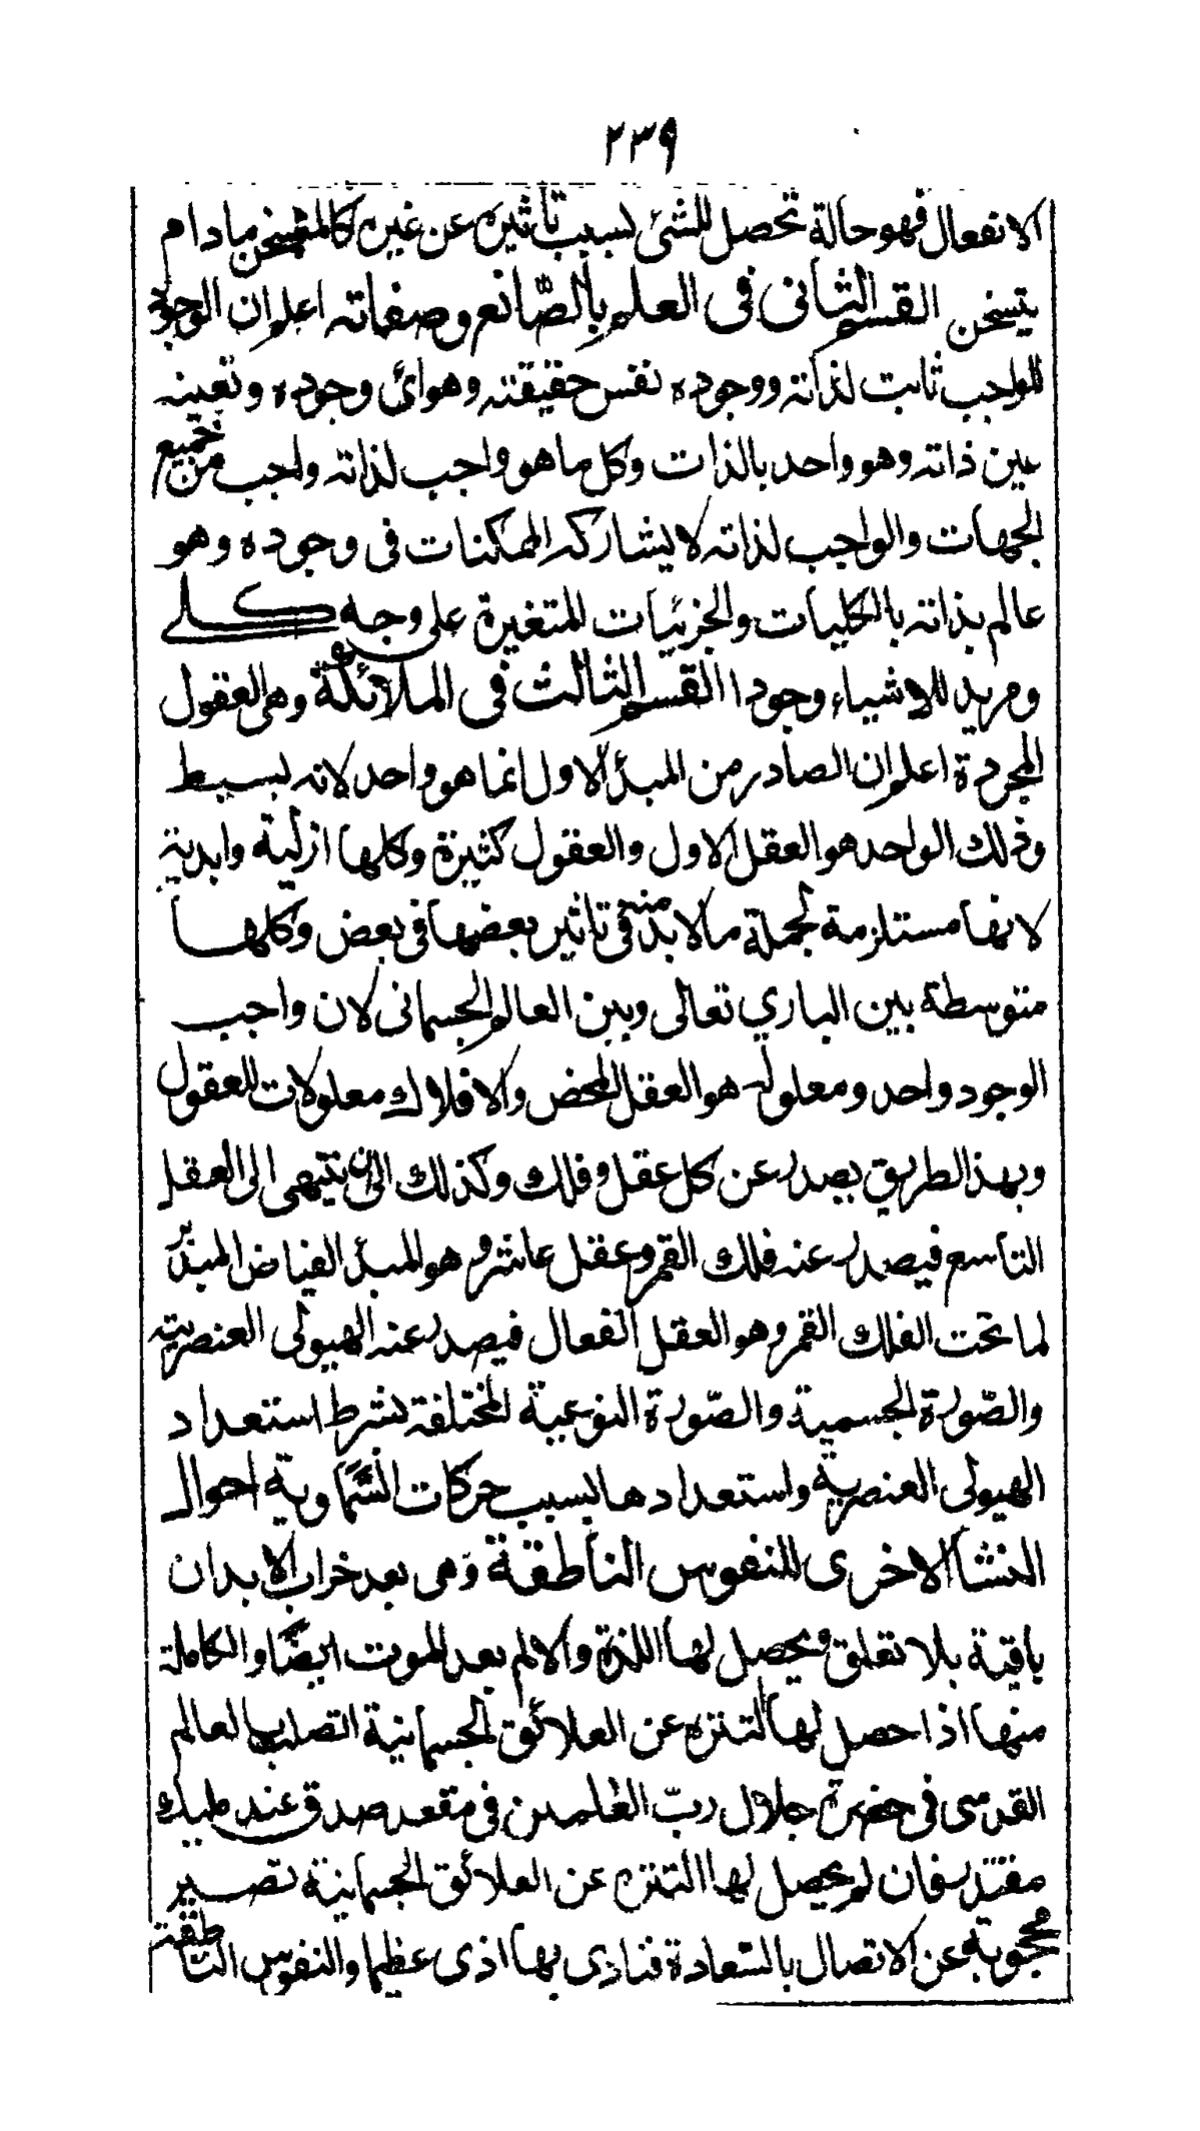 ٢٣٩
الانفعال فهو حالة تحصل للشئ بسبب تأثيره عن غيره كالمتسخن مادام
يتسخن القسم الثانى فى العلم بالصّانع وصفاته اعلم ان الوجود
للواجب ثابت لذاته ووجوده نفس حقيقته وهو اى وجوده وتعينه
عين ذاته وهو واحد بالذات وكل ما هو واجب لذاته واجب من جميع
الجهات والواجب لذاته لا يشاركه الممكنات فى وجوده وهو
عالم بذاته بالكليات والجزئيات المتغيرة على وجه كلى
ومريد للاشياء وجودا القسم الثالث فى الملائكة وهى العقول
المجردة اعلم ان الصادر من المبدأ الاول انما هو واحد لانه بسيط
وذلك الواحد هو العقل الاول والعقول كثيرة وكلها ازلية وابدية
لانها مستلزمة لجملة ما لا بد منه فى تاثير بعضها فى بعض وكلها
متوسطة بين الباري تعالى وبين العالم الجسمانى لان واجب
الوجود واحد ومعلوله هو العقل المحض والافلاك معلولات للعقول
وبهذا الطريق يصدر عن كل عقل وفلك وكذلك الى ان ينتهى الى العقل
التاسع فيصدر عنه فلك القمر وعقل عاشر وهو المبدأ الفياض المدبر
لما تحت الفلك القمر وهو العقل الفعال فيصدر عنه الهيولى العنصرية
والصّورة الجسمية والصّورة النوعية المختلفة بشرط استعداد
الهيولى العنصرية واستعدادها بسبب حركات السّماوية احوال
النشا الاخرى للنفوس الناطقة وهى بعد خراب الابدان
باقية بلا تعلق ويحصل لها اللذة والالم بعد الموت ايضًا والكاملة
منها اذا حصل لها التنزه عن العلائق الجسمانية اتصلت بالعالم
القدسى فى حضرة جلال ربّ العٰلمين فى مقعد صدق عند مليك
مقتدر فان لم يحصل لها التنزه عن العلائق الجسمانية تصير
محجوبة عن الاتصال بالسّعادة فتاذى بها اذى عظيما والنفوس الناطقة